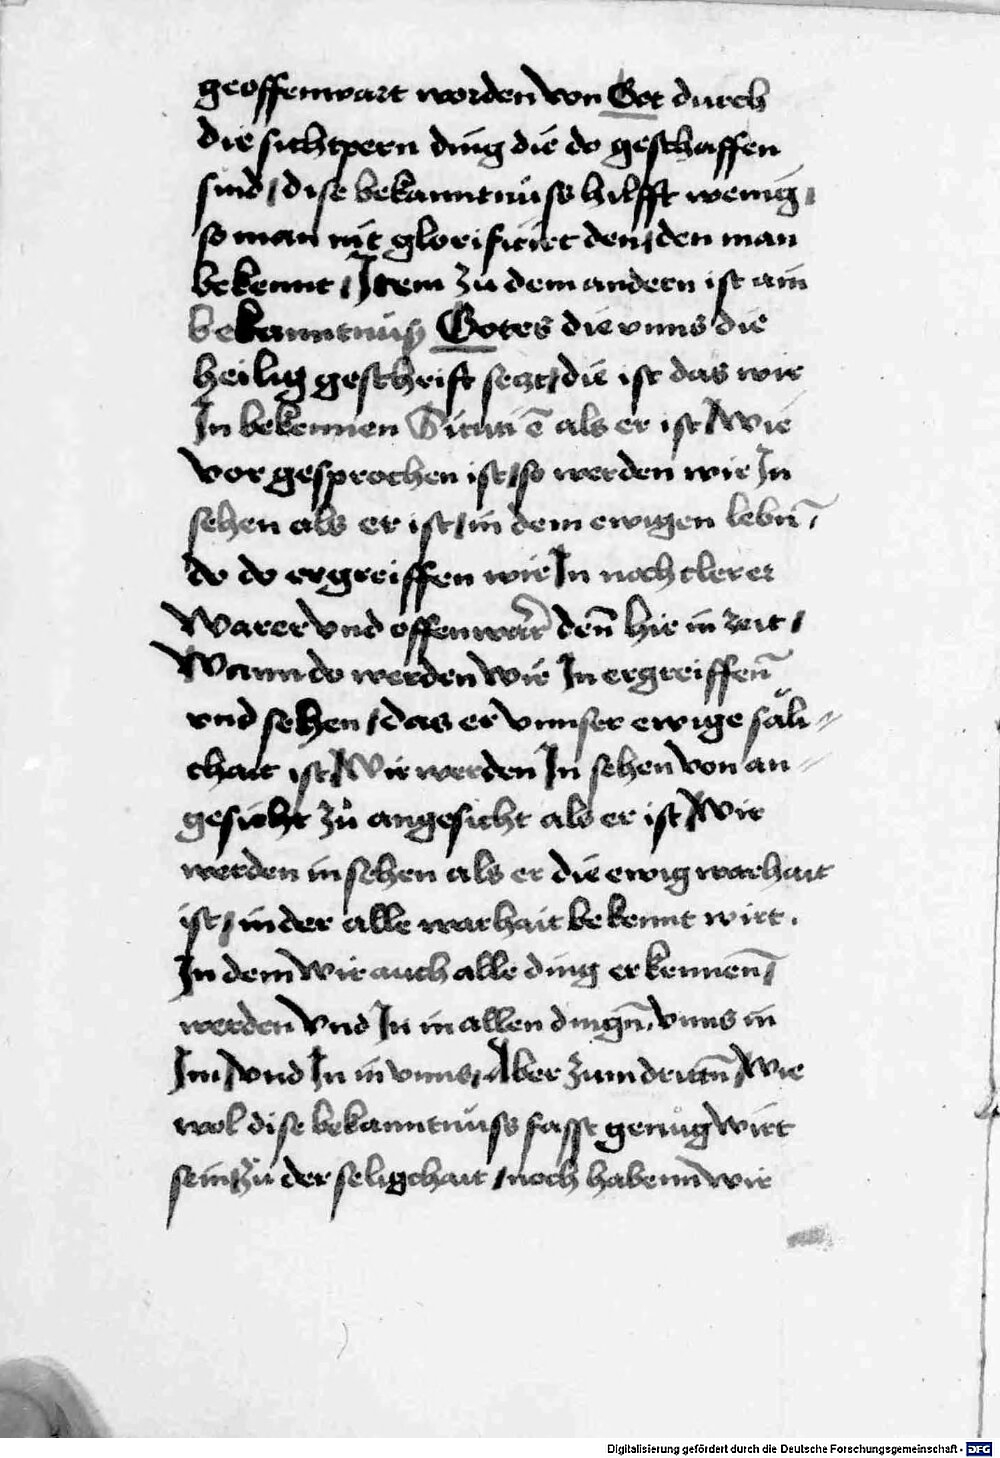 geoffenwart worden von Got durch
die sichtpern ding die do geschaffen
sind / dise bekanntnuss hilfft wenig /
so man nit glorificirt den / den man
bekennt / Item zu dem andern ist ain
bekanntnuß Gotes die vnns die
heilig geschrift seczt / die ist das wir
In bekennen Sicuti ē als er ist / Wie
vor gesprochen ist / so werden wir In
sehen als er ist / in dem ewigen lebn̄ /
do do ergreiffen wir In noch clerer
Warer vnd offenwar̄ den̄ hie in zeit /
Wann do werden wir In ergreiffen̄
vnd sehen / das er vnnser ewige säli=
chait ist / Wir werden In sehen von an=
gesicht zů angesicht als er ist / Wir
werden in sehen als er die ewig warhait
ist / in der alle warhait bekennt wirt .
In dem wir auch alle ding erkennen̄ /
werden vnd In in allen dingn̄ / vnns in
Im / vnd In in vnns / Aber zum drittn̄ / Wie
wol dise bekanntnuss fasst genůg wirt
sein / zu der seligchait / noch habenn wir
Digitalisierung gefördert durch die Deutsche Forschungsgemeinschaft - DFG